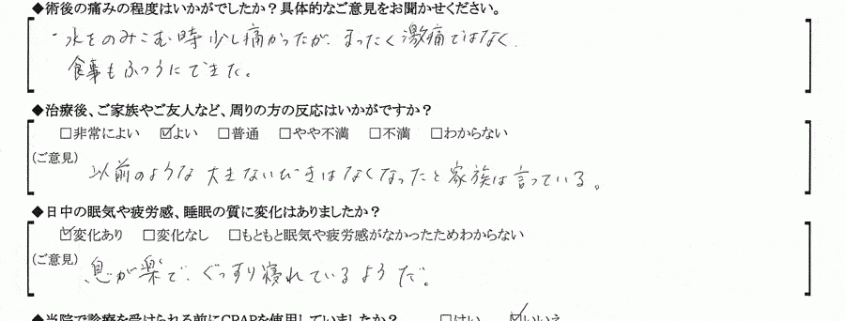 ◆術後の痛みの程度はいかがでしたか？具体的なご意見をお聞かせください。
水をのみこむ時少し痛かったが、まったく激痛ではなく、
食事もふつうにできた。
◆治療後、ご家族やご友人など、周りの方の反応はいかがですか？
□非常によい ☑よい □普通 □やや不満 □不満 □わからない
(ご意見)
以前のような大きないびきはなくなったと家族は言っている。
◆日中の眠気や疲労感、睡眠の質に変化はありましたか？
☑変化あり □変化なし □もともと眠気や疲労感がなかったためわからない
(ご意見)
息が楽で、ぐっすり寝れているようだ。
◆当院で診療を受けられる前にCPAPを使用していましたか？ □はい ☑いいえ